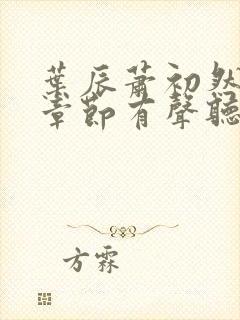 葉辰蕭初然
章節有聲聽
方霖